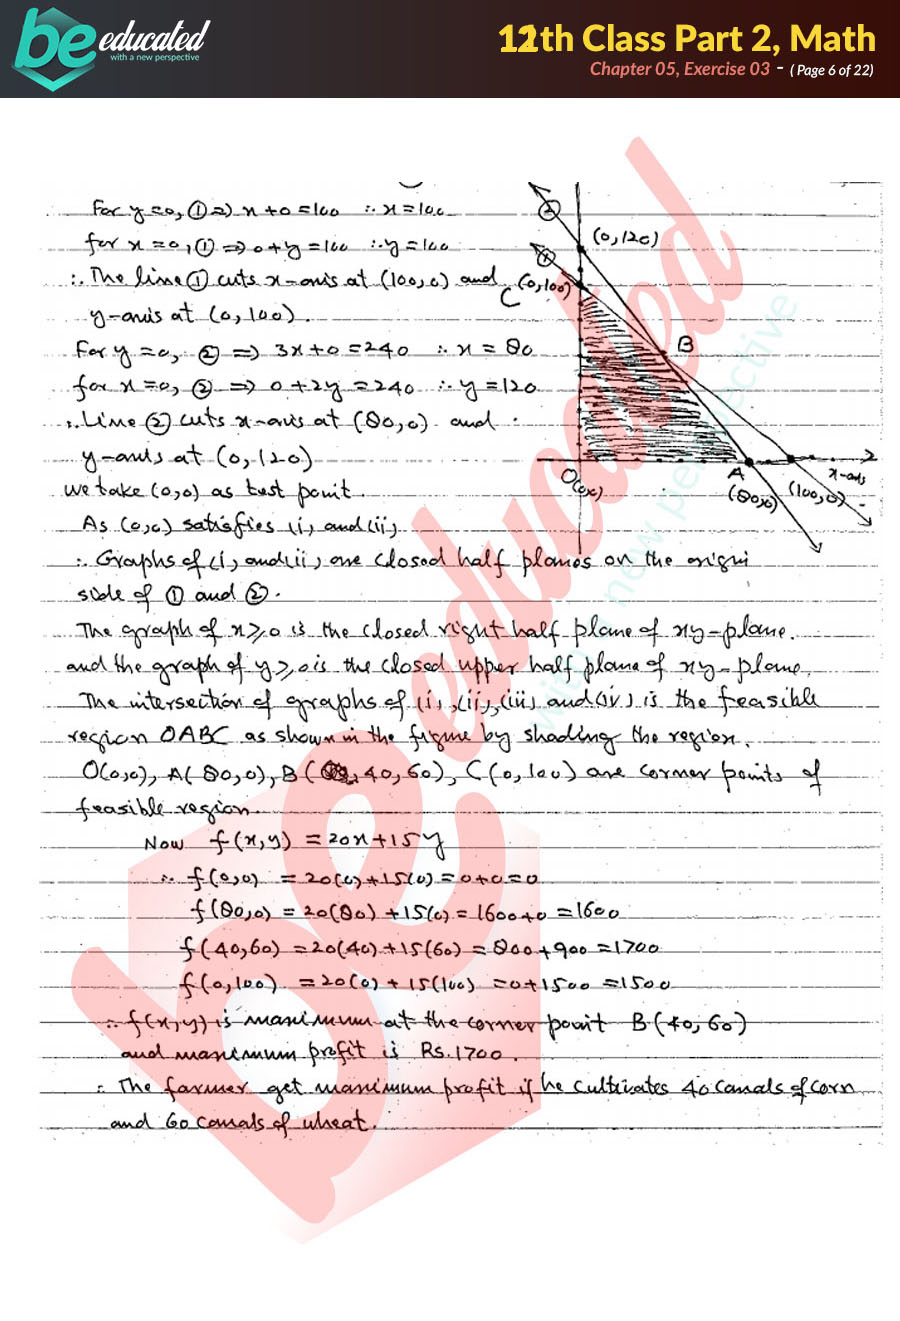 be educated
with a new perspective
12th Class Part 2, Math
Chapter 05, Exercise 03 - ( Page 6 of 22)
For y=0, ① ⇒ x+0=100 ∴ x=100
for x=0, ① ⇒ 0+y=100 ∴ y=100
∴ The line ① cuts x-axis at (100,0) and
y-axis at (0,100).
For y=0, ② ⇒ 3x+0=240 ∴ x=80
for x=0, ② ⇒ 0+2y=240 ∴ y=120
∴ Line ② cuts x-axis at (80,0) and
y-axis at (0,120)
we take (0,0) as test point.
As (0,0) satisfies (i) and (ii),
∴ Graphs of (i) and (ii) are closed half planes on the origin
side of ① and ②.
The graph of x≥0 is the closed right half plane of xy-plane.
and the graph of y≥0 is the closed upper half plane of xy-plane.
The intersection of graphs of (i), (ii), (iii) and (iv) is the feasible
region OABC as shown in the figure by shading the region.
O(0,0), A(80,0), B(40,60), C(0,100) are corner points of
feasible region.
Now f(x,y) = 20x+15y
∴ f(0,0) = 20(0)+15(0)=0+0=0
f(80,0) = 20(80)+15(0)=1600+0=1600
f(40,60) = 20(40)+15(60)=800+900=1700
f(0,100) = 20(0)+15(100)=0+1500=1500
∴ f(x,y) is maximum at the corner point B(40,60)
and maximum profit is Rs.1700.
∴ The farmer get maximum profit if he cultivates 40 canals of corn
and 60 canals of wheat.
②
(0,120)
①
C (0,100)
B
O(0,0)
A
(80,0)
(100,0)
x-axis
be educated
with a new perspective